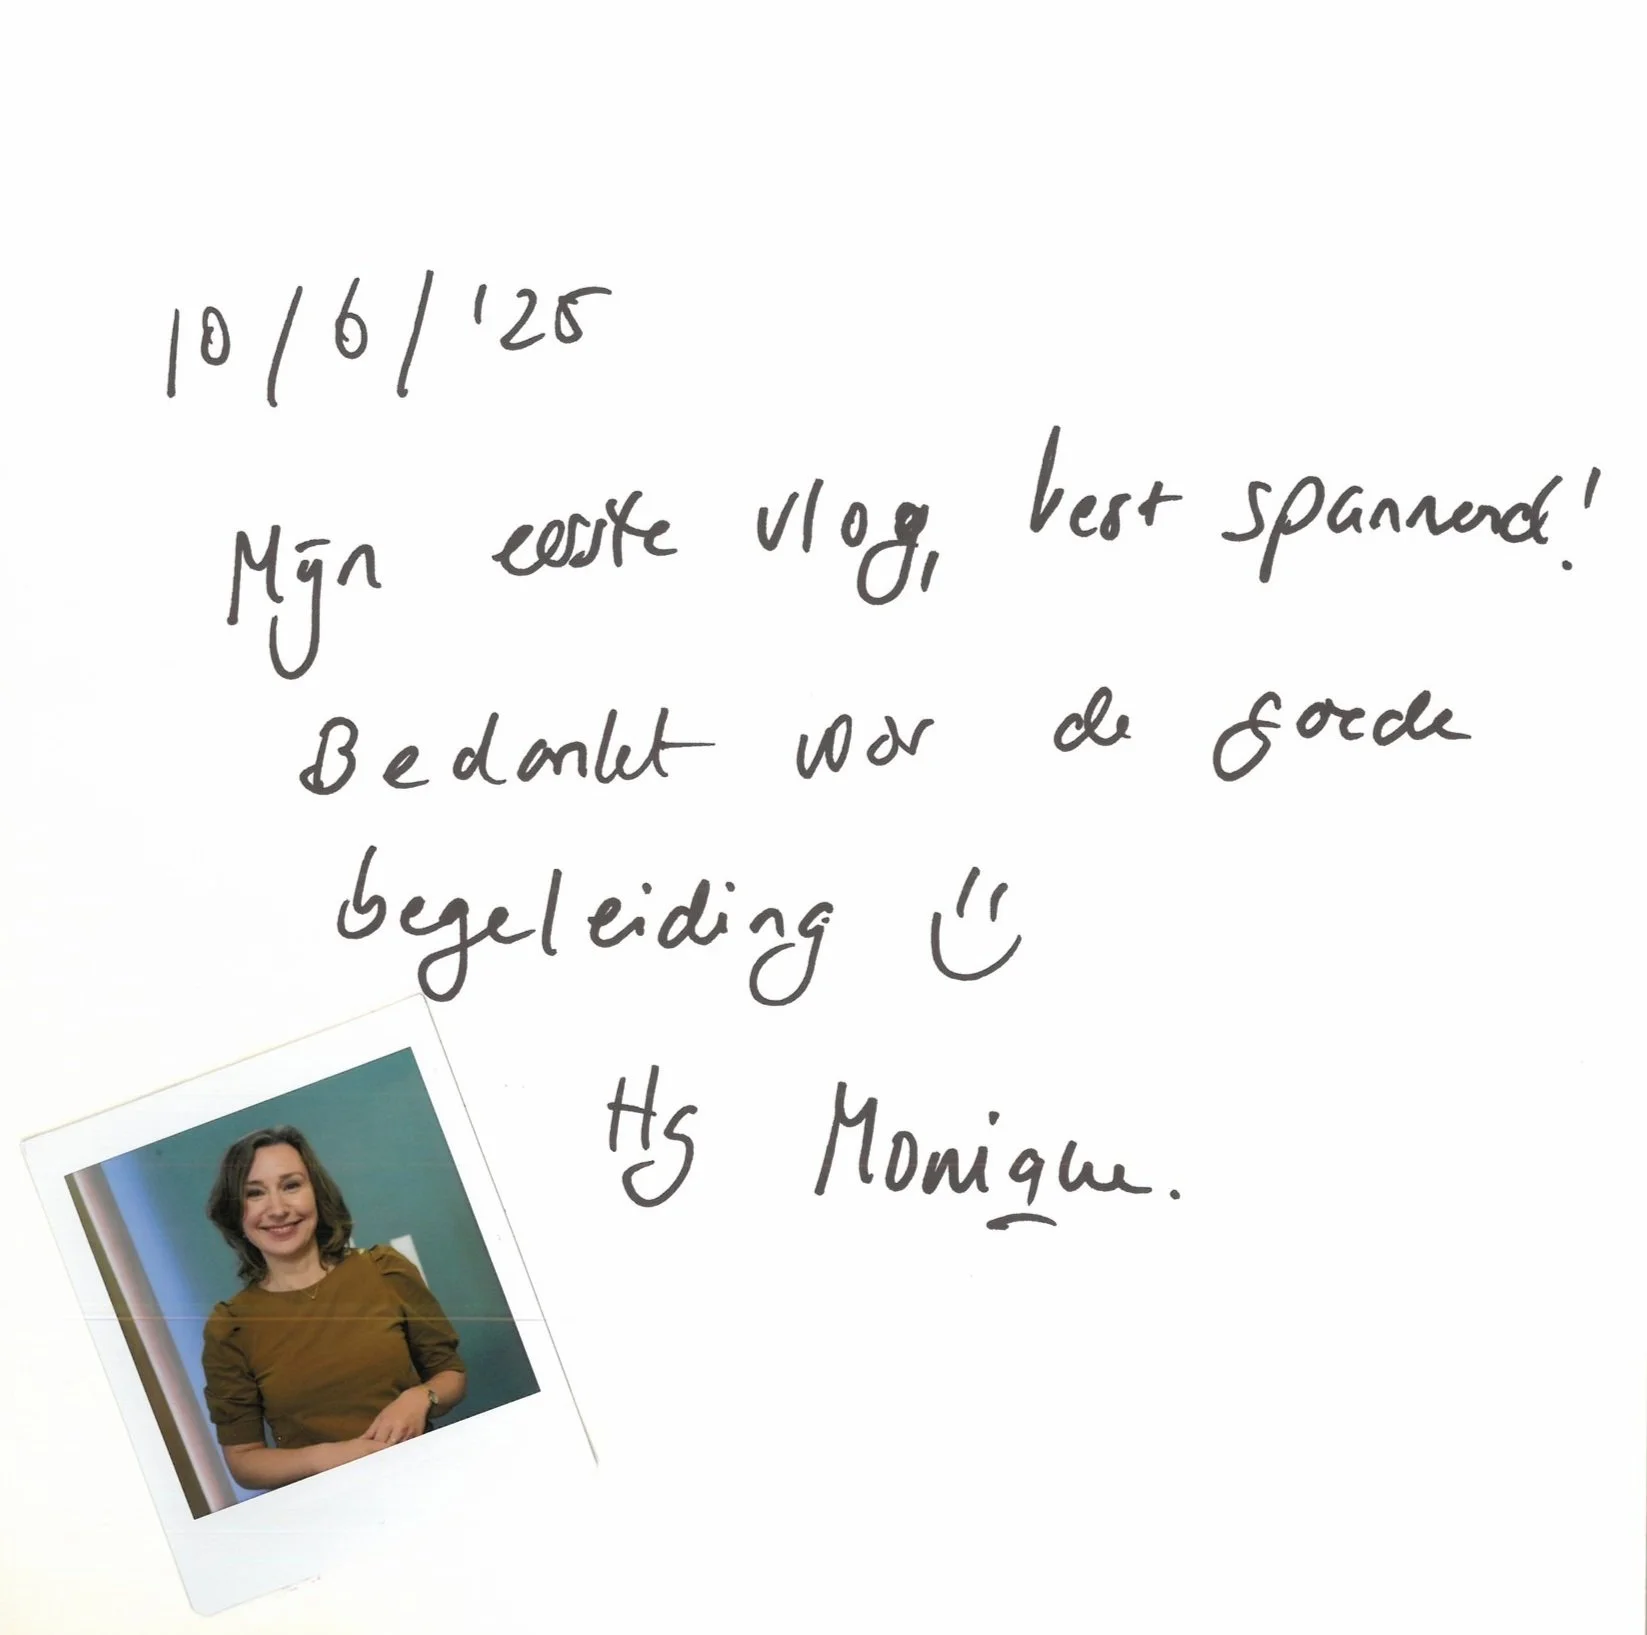 10/6/'25
Mijn eerste vlog, best spannend!
Bedankt voor de goede
begeleiding
Hg Monique.